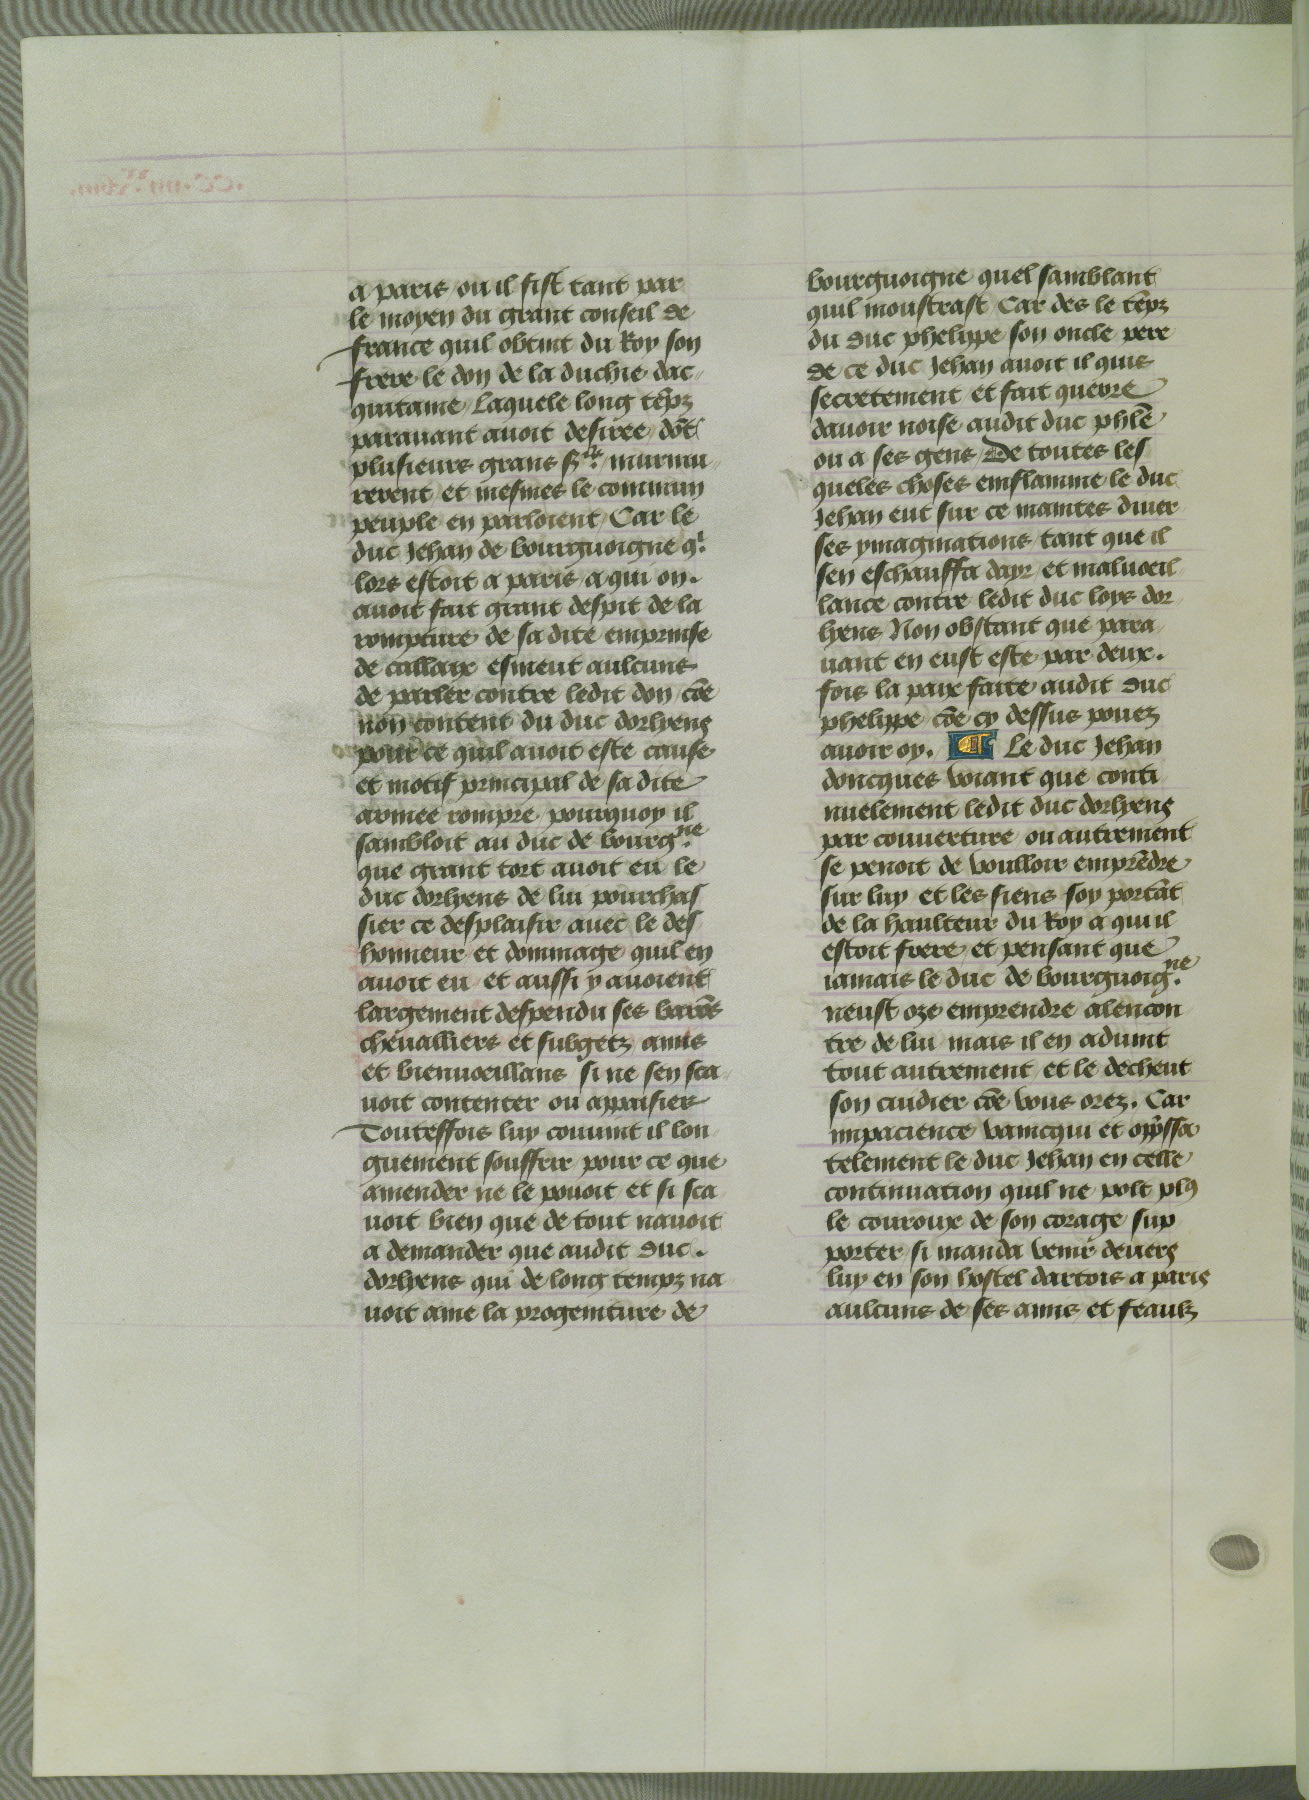 a paris ou il fist tant par
le moyen du grant conseil de
france quil obtint du Roy son
frere le don de la duchie dac-
quitaine / Laquele long tẽpz
parauant auoit desiree / dõt
plusieurs grans sʳˢ. murmu-
rerent et mesmes le commun
peuple en parloient / Car le
duc Jehan de bourguoigne qⁱ.
lors estoit a paris a qui on.
auoit fait grant despit de la
rompture de sa dite emprinse
de callaix esmeut aulcuns
de parler contre ledit don cõe
non content du duc dorlyens
pour ce quil auoit este cause
et motif principal de sa dite
armee rompre / pourquoy il
sambloit au duc de bourgⁿᵉ.
que grant tort auoit eu le
duc dorlyens de lui pourchas
sier ce desplaisir auec le des
honneur et dommage quil en
auoit eu et aussi y auoient
largement despendu ses barõs
cheualliers et subgetz amis
et bienuoeillans si ne sen sca-
uoit contenter ou appaisier
Touteffois luy conuint il lon
guement souffrir pour ce que
amender ne le pouoit et si sca
uoit bien que de tout nauoit
a demander que audit duc.
dorlyens qui de long tempz na
uoit ame la progeniture de
bourguoigne quel samblant
quil moustrast / Car des le tẽpz
du duc phelippe son oncle pere
de ce duc Jehan auoit il quis
secretement et fait querre
dauoir noise audit duc phle̅
ou a ses gens / De toutes les
queles choses emflamme le duc
Jehan eut sur ce maintes diuer
ses ymaginations / tant que il
sen eschauffa dayr et maluoeil-
lance contre ledit duc loys dor-
lyens Non obstant que para-
uant en eust este par deux.
fois la paix faite audit duc
phelippe cõe cy dessus pouez
auoir oy. ¶ Le duc Jehan
doncques voiant que conti
nuelement ledit duc dorlyens
par couuerture ou autrement
se penoit de voulloir emprẽdre
sur luy et les siens soy portãt
de la haulteur du Roy a qui il
estoit frere et pensant que
iamais le duc de bourguoigⁿᵉ.
neust oze emprendre alencon
tre de lui mais il en aduint
tout autrement et le decheut
son cuidier cõe vous orez. Car
impacience vaincqui et opp̃ssa
telement le duc Jehan en celle
continuation quil ne polt plꝰ
le couroux de son corage sup
porter si manda venir deuers
luy en son hostel dartois a paris
aulcuns de ses amis et feaulz